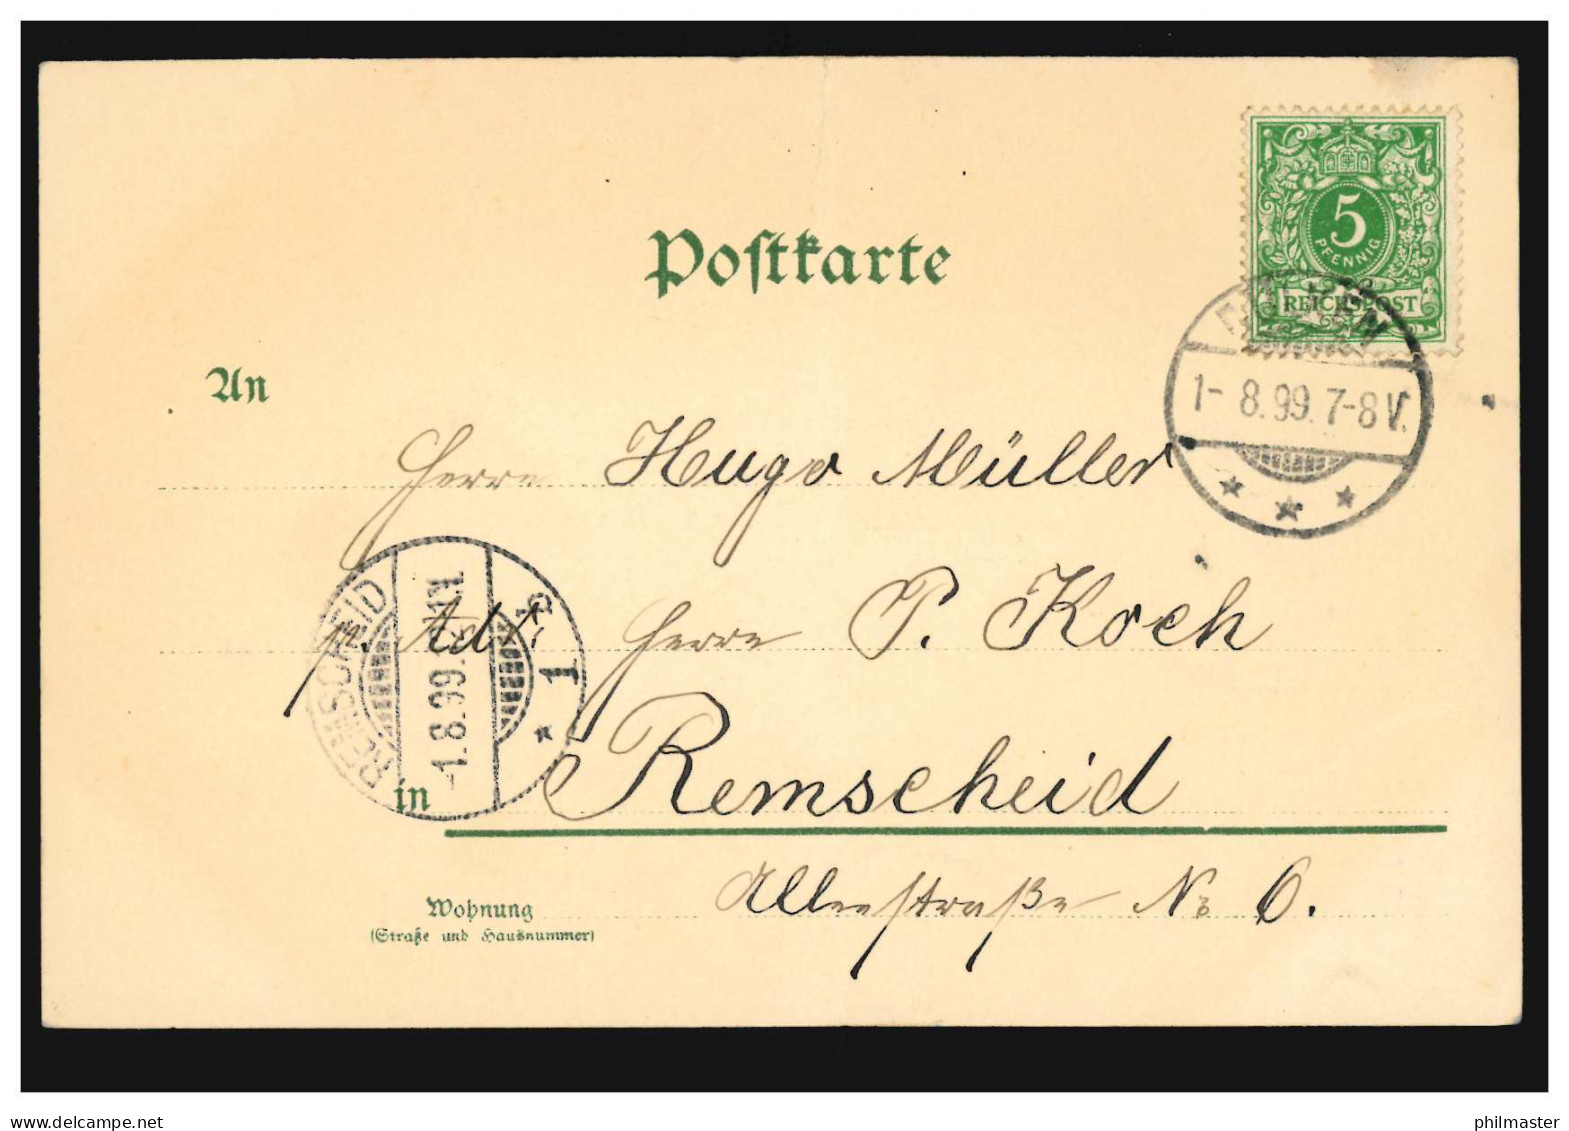 5
PFENNIG
REICHSPOST
Postkarte
1- 8.99. 7-8 V.
An
Herrn Hugo Müller
p. Adr. Herrn P. Koch
REMSCHEID
1
in Remscheid
Alleestraße No 6.
Wohnung
(Straße und Hausnummer)
delcampe.net
philmaster